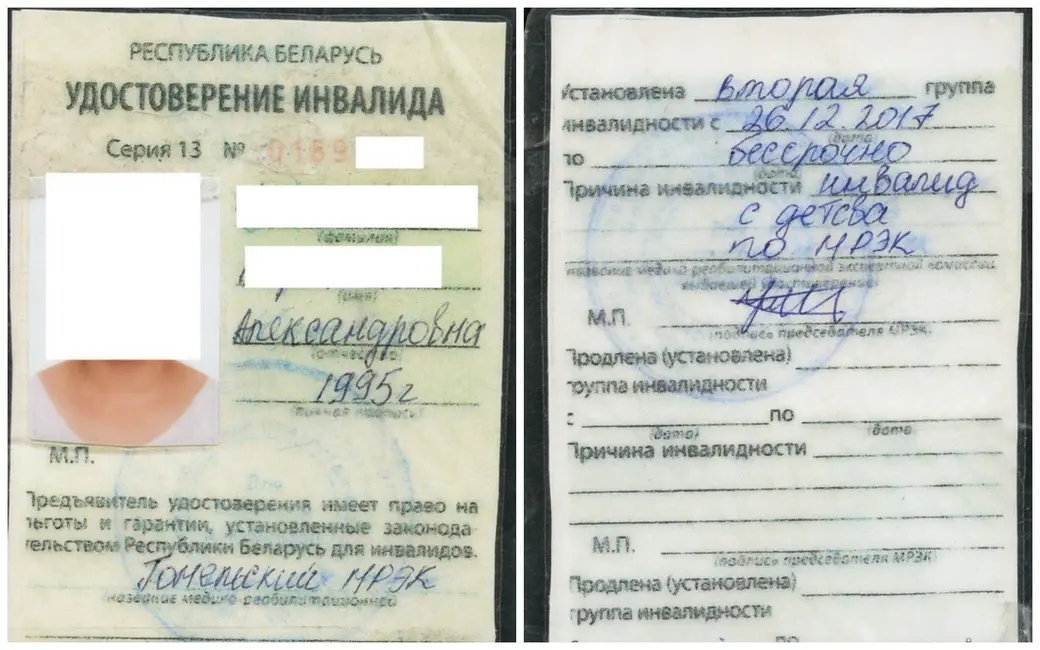 РЕСПУБЛИКА БЕЛАРУСЬ
УДОСТОВЕРЕНИЕ ИНВАЛИДА
Серия 13 № 0189
(фамилия)
(имя)
Александровна
(отчество)
1995г
(личная подпись)
М.П.
Предъявитель удостоверения имеет право на
льготы и гарантии, установленные законода
тельством Республики Беларусь для инвалидов.
Гомельский МРЭК
название медико реабилитационной
Установлена вторая группа
инвалидности с 26.12.2017
(дата)
по бессрочно
(дата)
Причина инвалидности инвалид
с детсва
по МРЭК
название медико реабилитационной экспертной комиссии
выдавшей удостоверение)
М.П.
(подпись председателя МРЭК)
Продлена (установлена)
группа инвалидности
с по
(дата) (дата)
Причина инвалидности
М.П.
(подпись председателя МРЭК)
Продлена (установлена)
группа инвалидности
по